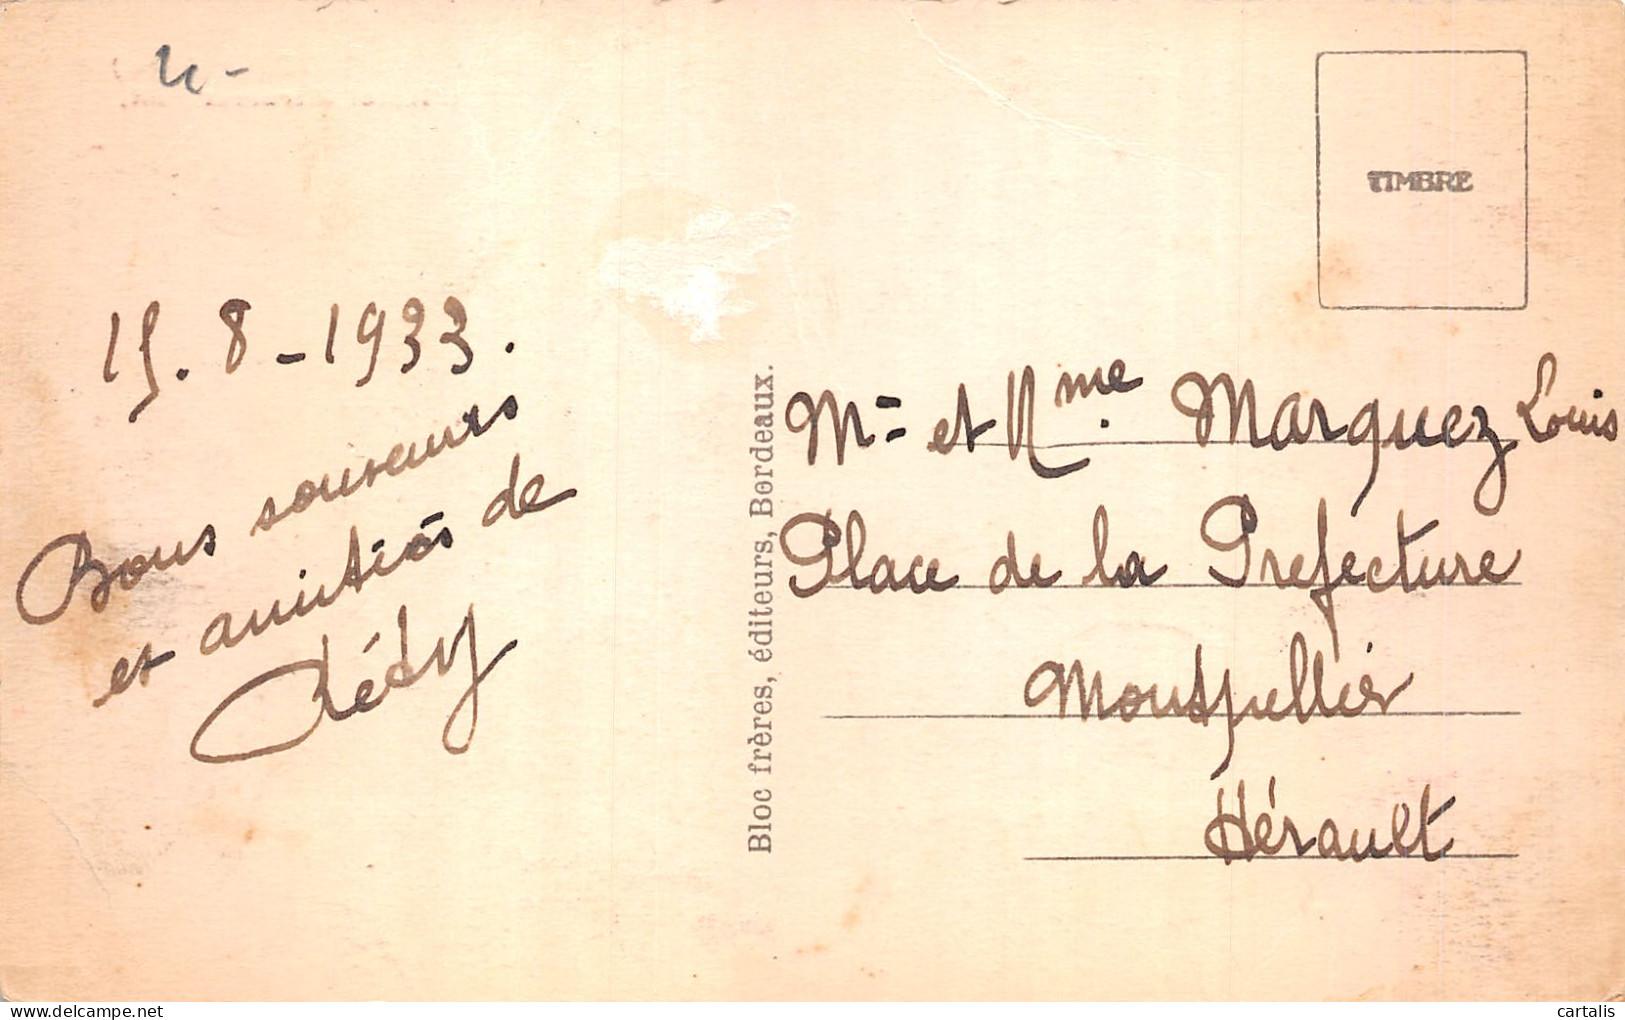 15.8-1933.
Bons souveurs
et amitiés de
TIMBRE
Bloc frères, éditeurs, Bordeaux.
Mr et Mme Marquez Louis
Place de la Prefecture
Montpellier
Hérault
delcampe.net
cartalis